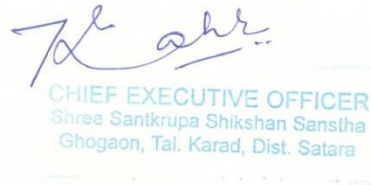 CHIEF EXECUTIVE OFFICER
Shree Santkrupa Shikshan Sanstha
Ghogaon, Tal. Karad, Dist. Satara